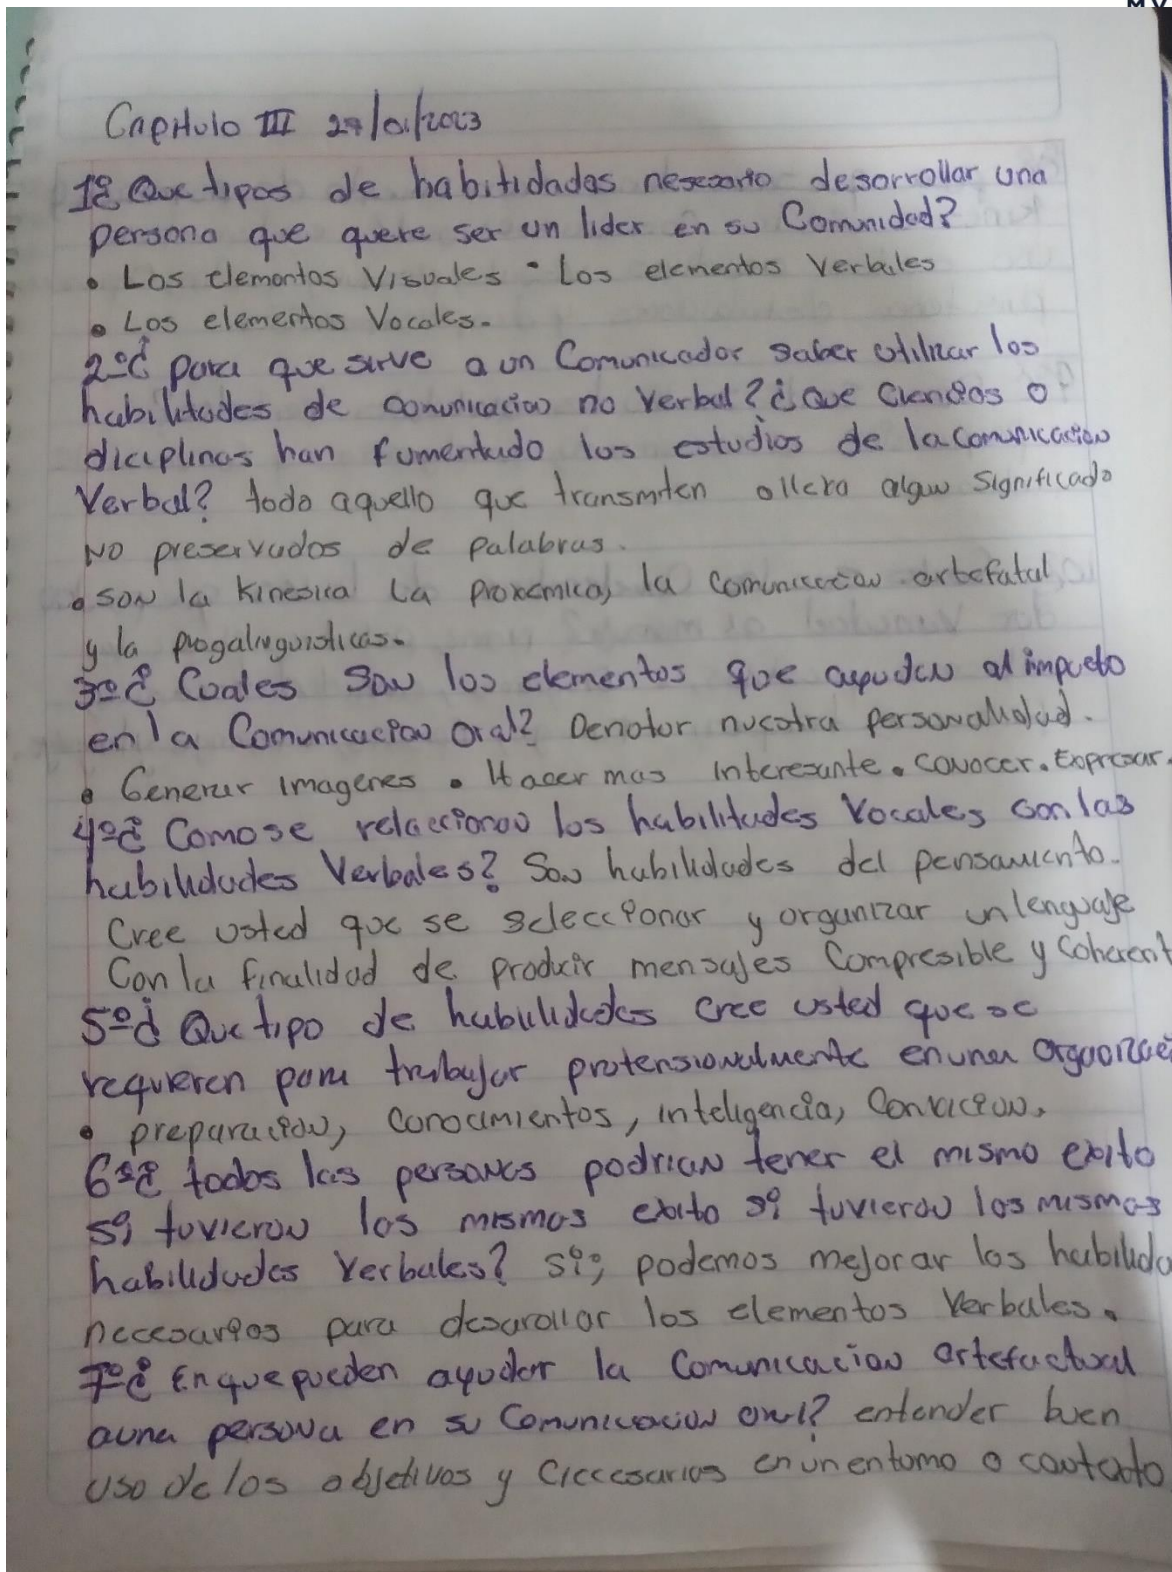 Capitulo III 27/01/2023
1º¿ Que tipos de habitidadas nesesario desorrollar una
persona que quere ser un lider en su Comunidad?
• Los elementos Visuales • Los elementos Verbales
• Los elementos Vocales.
2º¿ para que sirve a un Comunicador saber utilizar los
habilitades de comunicacion no Verbal? ¿Que Ciencias o
diciplinas han fumentado los estudios de la comunicacion
Verbal? todo aquello que transmiten o llera algun significado
NO preservados de palabras.
• SON la Kinesica La proxemica, la comunicacion artefatal
y la progalinguisticas.
3º¿ Cuales Son los elementos que ayudan al impacto
en la Comunicacion Oral? Denotar nuestra personalidad.
• Generar imagenes • Hacer mas interesante. conocer. Expresar.
4º¿ Como se relaccionan los habilitades Vocales con las
habilidades Verbales? Son habilidades del pensamiento.
Cree usted que se seleccionar y organizar un lenguaje
Con la finalidad de producir mensajes Compresible y Coherent
5º¿ Que tipo de habilidades Cree usted que se
requieren para trabajar protensionalmente en una
• preparacion, conocimientos, inteligencia,
6º¿ todos las personas podrian tener el mismo exito
si tuvieron los mismos exito si tuvieron los mismas
habilidades Verbales? Si; podemos mejorar los habilida
necesarios para desarollar los elementos Verbales.
7º¿ En que pueden ayudar la Comunicacion artefactual
a una persona en su Comunicacion oral? entender buen
uso de los objetivos y en un entorno o contexto